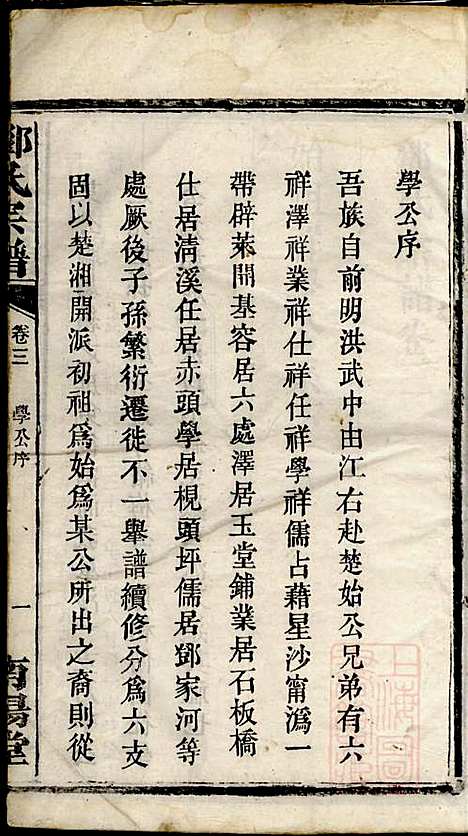 學公序
吾族自前明洪武中由江右赴楚始公兄弟有六
祥澤祥業祥仕祥任祥學祥儒占藉星沙甯溈一
帶辟萊開基容居六處澤居玉堂鋪業居石板橋
仕居清溪任居赤頭學居梘頭坪儒居鄧家河等
處厥後子孫繁衍遷徙不一舉譜續修分爲六支
固以楚湘開派初祖爲始爲某公所出之裔則從
鄧氏宗譜
卷三
學公序
一
南陽堂
上海圖